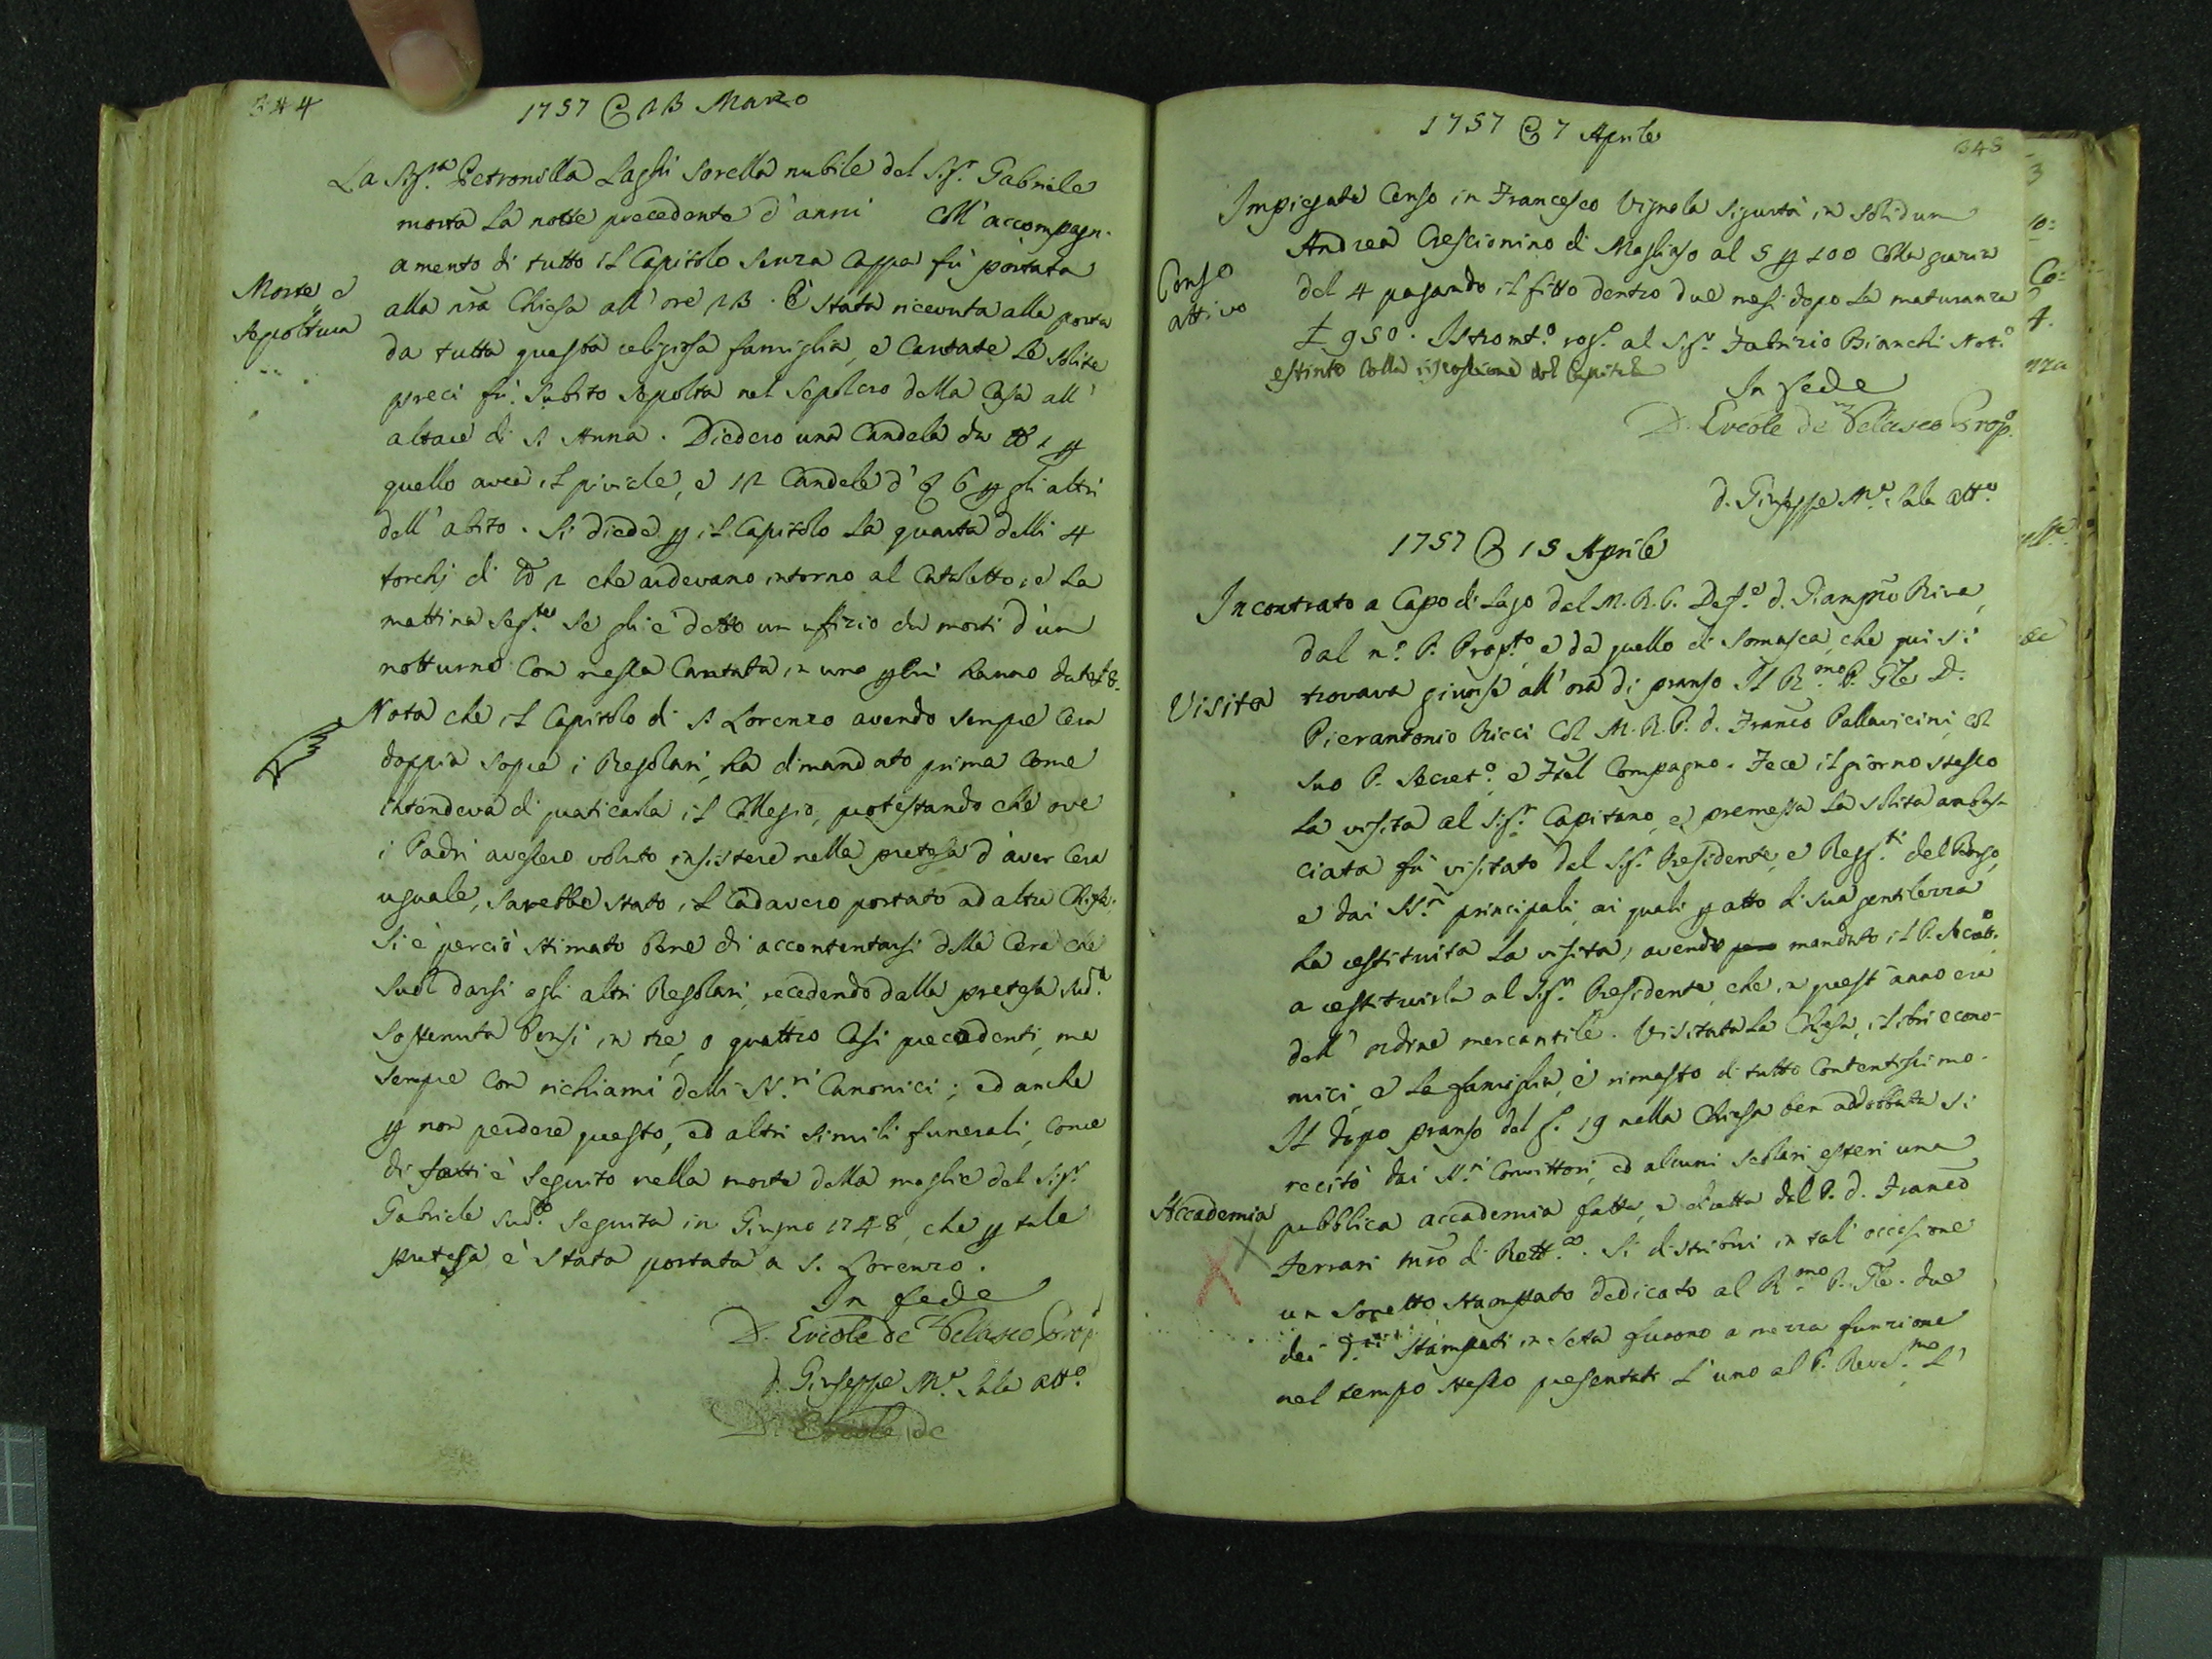 344
1757 @ 23 Marzo
La Sig.ra Petronilla Laghi sorella nubile del Sig.r Gabriele
morta la notte precedente d'anni coll'accompagn-
amento di tutto il Capitolo senza Cappa fù portata
Morte e
Sepoltura
alla nra Chiesa all'ore 23. È stata ricevuta alla porta
da tutta questa religiosa famiglia, e Cantate le solite
preci fù subito sepolta nel Sepolcro della Casa all'
altare di S. Anna. Diedero una Candela da ℔ 1 p
quello avea il piviale, e 12 Candele d'℥ 6 p gli altri
dell'abito. Si diede p il Capitolo la quarta delli 4
torchj di ℔ 2 che ardevano intorno al Cataletto, e la
mattina seg.te se gli è detto un ufizio da morti d'un
notturno con messa Cantata, in uno hanno dato £ 8.
Nota che il Capitolo di S. Lorenzo avendo sempre Cera
doppia sopra i Regolari, ha dimandato prima come
intendeva di praticarla il Collegio, protestando che ove
i Padri avessero voluto insistere nella pretesa d'aver Cera
uguale, sarebbe stato il Cadavero portato ad altra Chiesa;
Si è perciò stimato bene di accontentarsi della Cera che
suol darsi agli altri Regolari, recedendo dalla pretesa sud.a
sostenuta bensi in tre, o quattro Casi precedenti, ma
sempre con richiami delli SS.ri Canonici; ed anche
p non perdere questo, ed altri simili funerali, come
di fatti è seguito nella morte della moglie del Sig.r
Gabriele sud.to seguita in Giugno 1748, che p tale
pretesa è stata portata a S. Lorenzo.
In fede
D. Ercole de Velasco Prop.
d. Giuseppe M.a Sala att.o
D. Ercole de
345
1757 @ 7 Aprile
Impiegato Censo in Francesco Vignola sigurtà in solidum
Andrea Crescionino di Magliaso al 5 p 100 colla grazia
Censo
attivo
del 4 pagando il fitto dentro due mesi dopo la maturanza
£ 950. Istromt.o rog.o al Sig.r Fabrizio Bianchi Not.o
estinto colla riscossione del Capitale
In fede
D. Ercole de Velasco Prop.o
d. Giuseppe M.a Sala att.o
1757 @ 15 Aprile
Incontrato a Capo di Lago dal M. R. P. Def.e d. Giampro Riva,
dal n.o P. Prop.to, e da quello di Somasca, che qui si
Visita
trovava giunse all'ora di pranso Il R.mo P. Gle D.
Pierantonio Ricci Col M. R. P. d. Franco Pallavicini, col
suo P. Secret.o e Frel Compagno. Fece il giorno stesso
la visita al Sig.r Capitano, e premessa la solita ambas-
ciata fù visitato dal Sig.r Presidente, e Regg.ti del Borgo,
e dai SS.ri principali, ai quali p atto di sua gentilezza
ha restituita la visita, avendo mandato il P. Secret.o
a restituirla al Sig.r Presidente, che in quest'anno era
dell'ordine mercantile. Visitata la Chiesa, i libri econo-
mici, e la famiglia, è rimasto di tutto Contentissimo.
Il dopo pranso del g. 19 nella Chiesa ben addobbata si
recitò dai SS.ri Convittori, ed alcuni scolari esteri una
Accademia
pubblica accademia fatta, e diretta dal P. d. Franco
Ferrari mro di Rett.ca. Si distribuì in tal occasione
un Sonetto stampato dedicato al R.mo P. Gle. due
dei d.ti stampati in seta furono a mezza funzione
nel tempo stesso presentati l'uno al P. Revd.mo l'
3
10:
Co:
4.
nza